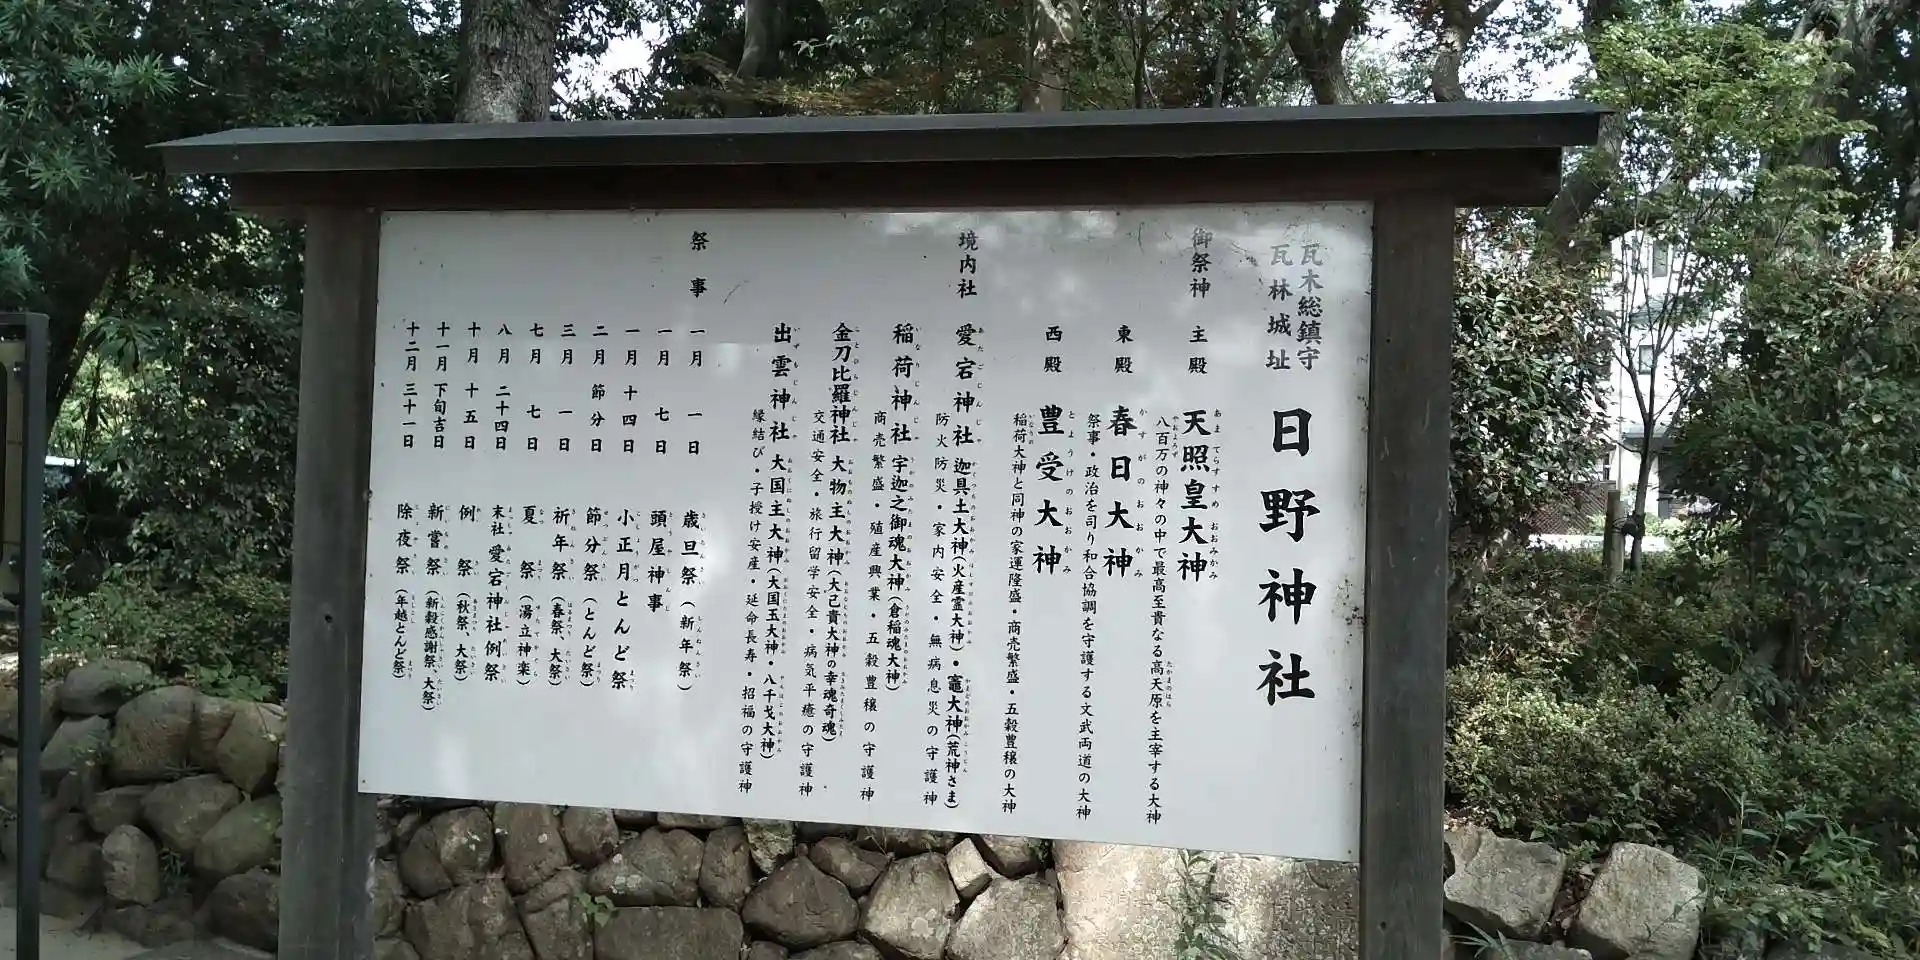 瓦木総鎮守
瓦林城址
日野神社
御祭神
主殿 天照皇大神
八百万の神々の中で最高至貴なる高天原を主宰する大神
東殿 春日大神
祭事・政治を司り和合協調を守護する文武両道の大神
西殿 豊受大神
稲荷大神と同神の家運隆盛・商売繁盛・五穀豊穣の大神
境内社
愛宕神社 迦具土大神(火産霊大神)・竈大神(荒神さま)
防火防災・家内安全・無病息災の守護神
稲荷神社 宇迦之御魂大神(倉稲魂大神)
商売繁盛・殖産興業・五穀豊穣の守護神
金刀比羅神社 大物主大神(大己貴大神の幸魂奇魂)
交通安全・旅行留学安全・病気平癒の守護神
出雲神社 大国主大神(大国玉大神・八千戈大神)
縁結び・子授け安産・延命長寿・招福の守護神
祭事
一月 一日 歳旦祭(新年祭)
一月 七日 頭屋神事
一月 十四日 小正月とんど祭
二月 節分日 節分祭(とんど祭)
三月 一日 祈年祭(春祭、大祭)
七月 七日 夏祭(湯立神楽)
八月 二十四日 末社 愛宕神社例祭
十月 十五日 例祭(秋祭、大祭)
十一月 下旬吉日 新嘗祭(新穀感謝祭、大祭)
十二月 三十一日 除夜祭(年越とんど祭)